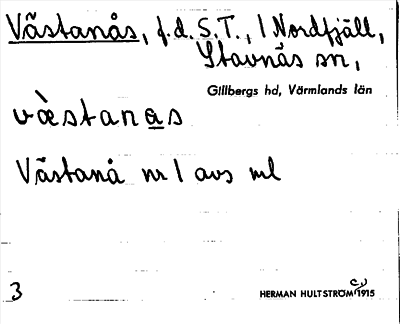 Västanås, f.d. S.T., 1 Nordfjäll,
Stavnäs sn,
Gillbergs hd, Värmlands län
væ̀stanas
Västanå nr 1 avs ml
3
HERMAN HULTSTRÖM 1915